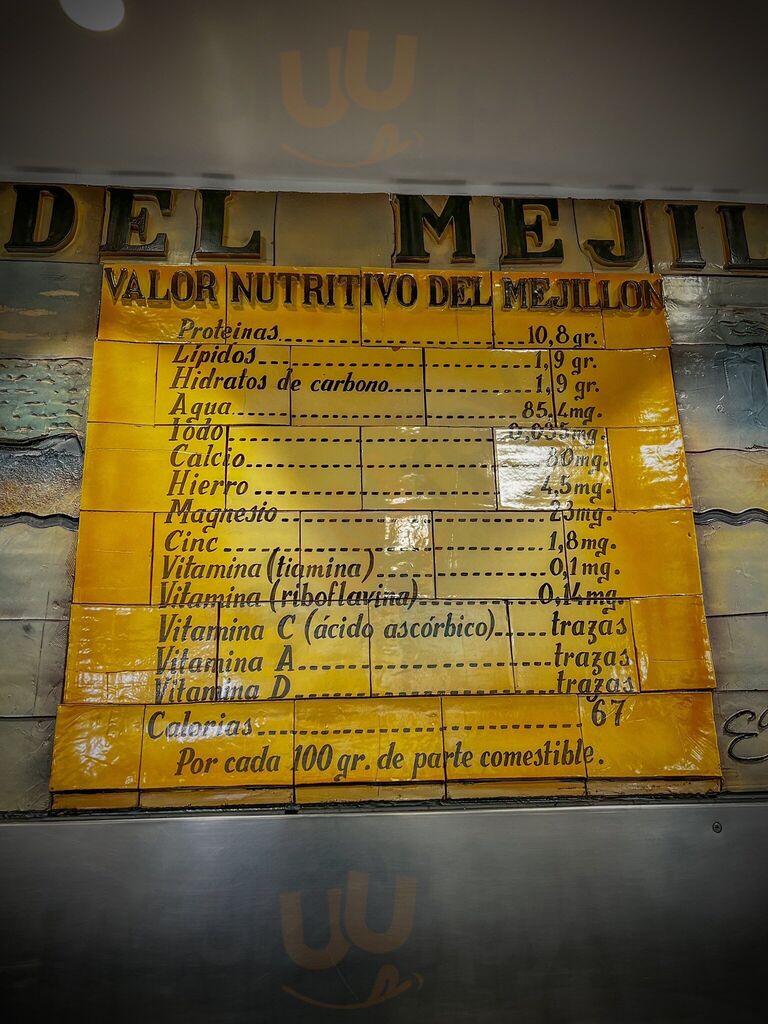 DEL MEJIL
VALOR NUTRITIVO DEL MEJILLON
Proteinas 10,8 gr.
Lípidos 1,9 gr.
Hidratos de carbono 1,9 gr.
Agua 85,4 mg.
Iodo 0,035 mg.
Calcio 80 mg.
Hierro 4,5 mg.
Magnesio 23 mg.
Cinc 1,8 mg.
Vitamina (tiamina) 0,1 mg.
Vitamina (riboflavina) 0,14 mg.
Vitamina C (ácido ascórbico) trazas
Vitamina A trazas
Vitamina D trazas
Calorias 67
Por cada 100 gr. de parte comestible.